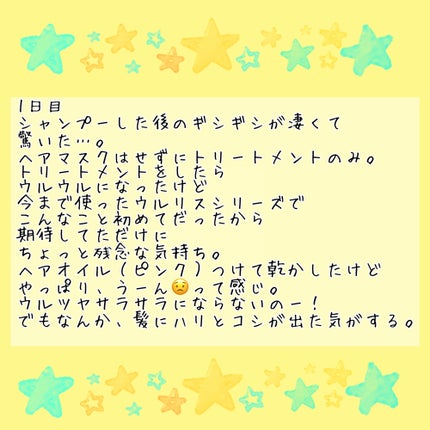 1日目
シャンプーした後のギシギシが凄くて
驚いた…。
ヘアマスクはせずにトリートメントのみ。
トリートメントをしたら
ウルウルになったけど
今まで使ったウルリスシリーズで
こんなこと初めてだったから
期待してただけに
ちょっと残念な気持ち。
ヘアオイル(ピンク)つけて乾かしたけど
やっぱり、うーん😟って感じ。
ウルツヤサラサラにならないのー!
でもなんか、髪にハリとコシが出た気がする。